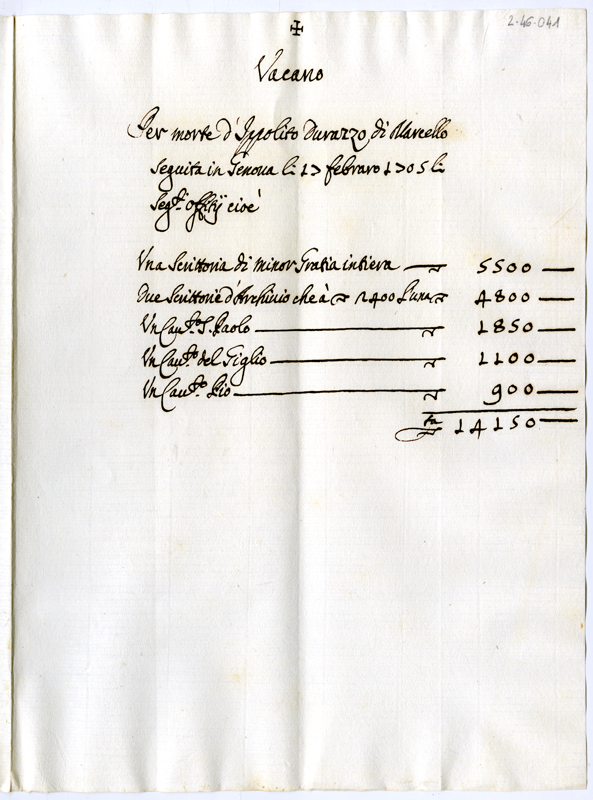 2-46-041
✠
Vacano
Per morte d'Ippolito Durazzo di Marcello
seguita in Genova li 17 febraro 1705 li
seg.ti offitij cioè
Una Scrittoria di minor Gratia intiera 5500
Due Scrittorie d'Archivio che à 2400 l'una 4800
Un Cau.to S. Paolo 1850
Un Cau.to del Giglio 1100
Un Cau.to Pio 900
14150